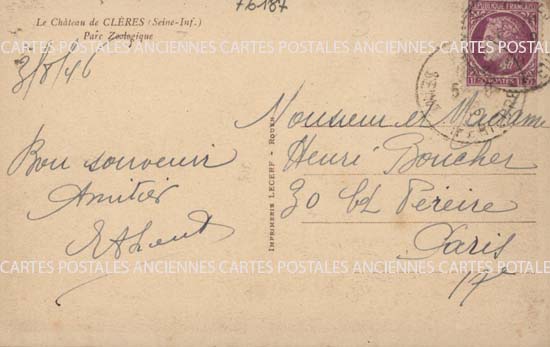 76187
Le Château de CLÈRES (Seine-Inf.)
Parc Zoologique
3/8/46
RÉPUBLIQUE FRANÇAISE
POSTES
Bon souvenir
Amitiés
IMPRIMERIE LECERF - ROUEN
Monsieur et Madame
Henri Boucher
30 bd Pereire
Paris
17e
CARTES POSTALES ANCIENNES CARTES POSTALES ANCIENNES CARTES POSTALES ANCIENNES
CARTES POSTALES ANCIENNES CARTES POSTALES ANCIENNES CARTES POSTALES ANCIENNES